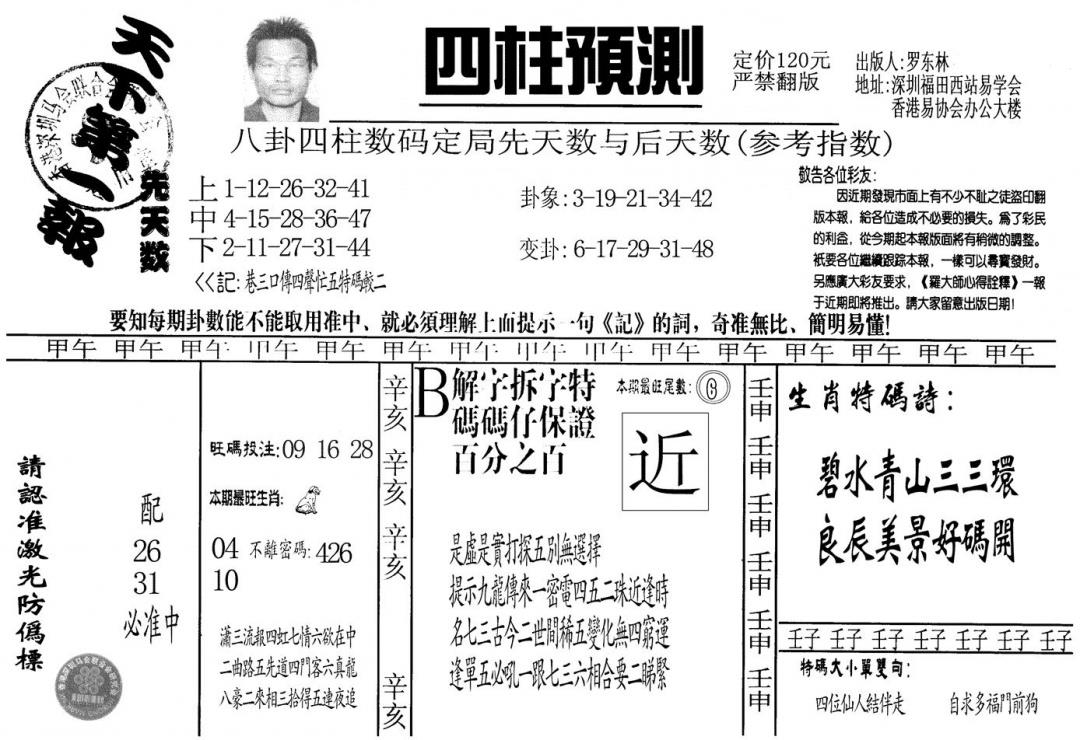 天下第一報
四柱預測
定价120元
严禁翻版
出版人:罗东林
地址:深圳福田西站易学会
香港易协会办公大楼
八卦四柱数码定局先天数与后天数(参考指数)
先天数
上1-12-26-32-41
中4-15-28-36-47
下2-11-27-31-44
<<記:巷三口傳四聲忙五特碼較二
卦象:3-19-21-34-42
变卦:6-17-29-31-48
敬告各位彩友:
因近期發現市面上有不少不耻之徒盜印翻
版本報,給各位造成不必要的損失。爲了彩民
的利益,從今期起本報版面將有稍微的調整。
衹要各位繼續跟踪本報,一樣可以尋寶發財。
另應廣大彩友要求,《羅大師心得詮釋》一報
于近期即將推出。請大家留意出版日期!
要知每期卦數能不能取用准中、就必須理解上面提示一句《記》的詞,奇准無比、簡明易懂!
甲午 甲午 甲午 甲午 甲午 甲午 甲午 甲午 甲午 甲午 甲午 甲午 甲午 甲午 甲午
請認准激光防僞標
配
26
31
必准中
旺碼投注:09 16 28
本期最旺生肖:
04 不離密碼:426
10
瀟三流報四虹七情六欲在中
二曲路五先道四門客六真龍
八豪二來相三拾得五連夜追
辛亥
辛亥
辛亥
辛亥
B解字拆字特
碼碼仔保證
百分之百
本期最旺尾數:6
近
是虛是實打探五別無選擇
提示九龍傳來一密電四五二珠近逢時
名七三古今二世間稀五變化無四窮運
逢單五必吼一跟七三六相合要二睇緊
壬申
壬申
壬申
壬申
壬申
壬申
生肖特碼詩:
碧水青山三三環
良辰美景好碼開
壬子 壬子 壬子 壬子 壬子 壬子 壬子
特碼大小單雙句:
四位仙人結伴走 自求多福門前狗